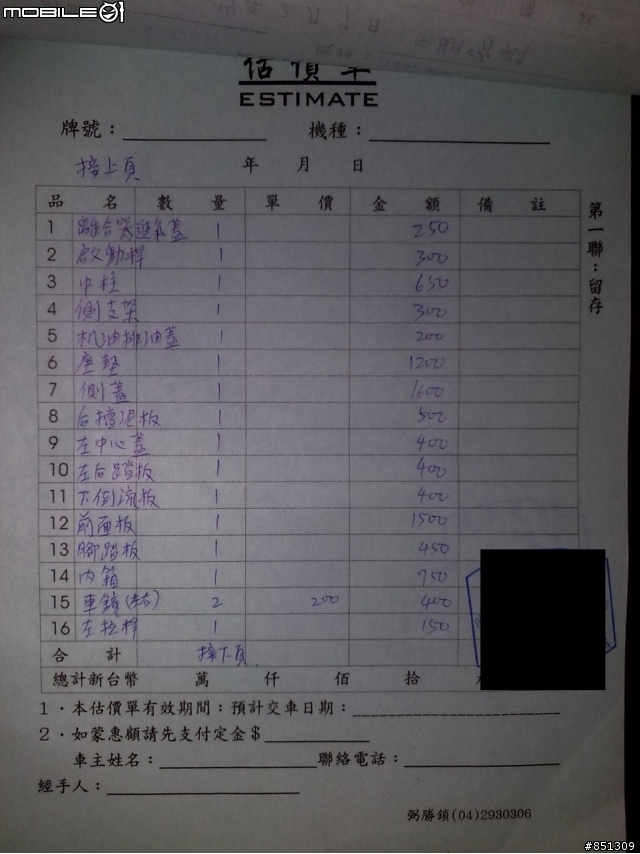 MOBILE01
估價單
ESTIMATE
牌號： 機種：
接上頁 年 月 日
品 名 數 量 單 價 金 額 備 註
1 離合器進氣蓋 1 250
2 啟動桿 1 300
3 中柱 1 650
4 側支架 1 300
5 机油排油蓋 1 200
6 座墊 1 1200
7 側蓋 1 1600
8 右擋泥板 1 500
9 左中心蓋 1 400
10 左右踏板 1 400
11 下倒流板 1 400
12 前面板 1 1500
13 腳踏板 1 450
14 內箱 1 750
15 車鏡(左右) 2 200 400
16 左拉桿 1 150
合 計 接下頁
總計新台幣 萬 仟 佰 拾
第一聯：留存
1．本估價單有效期間：預計交車日期：
2．如蒙惠顧請先支付定金$
車主姓名： 聯絡電話：
經手人：
弼勝鎖(04)2930306
#851309